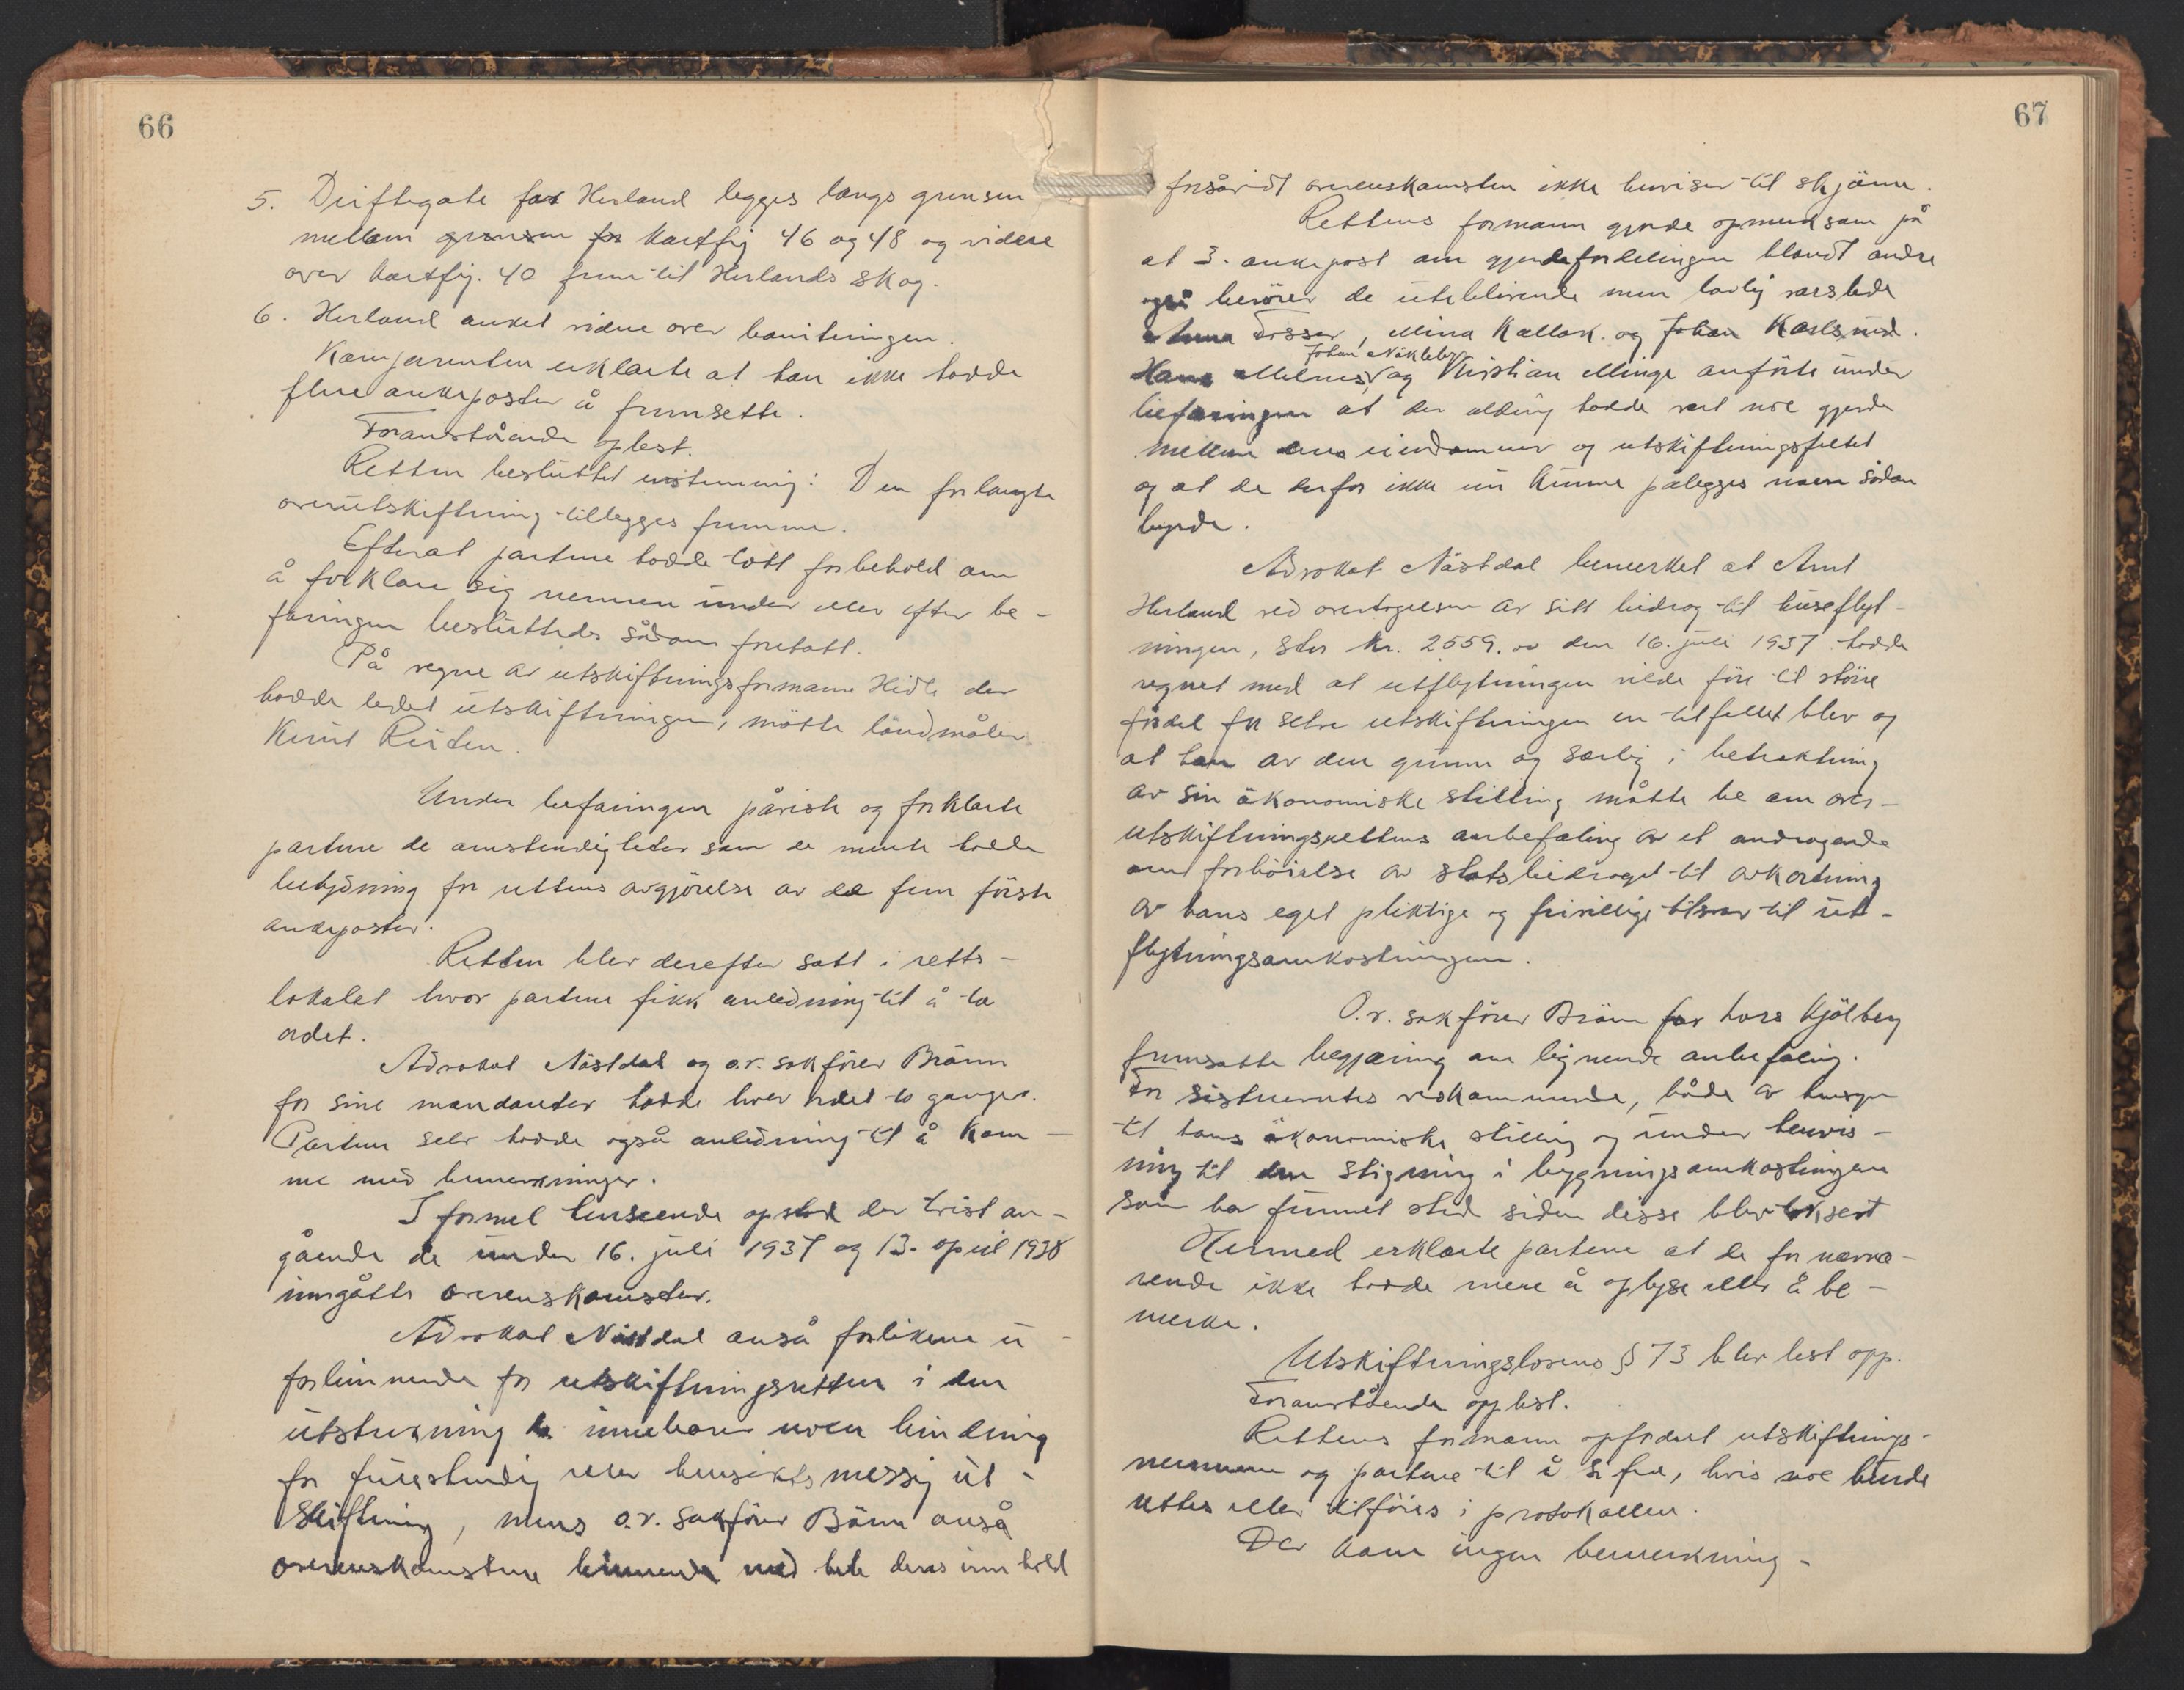 66
5. Driftegate for Herland legges langs grensen
mellem grensen for kartfig 46 og 48 og videre
over kartfig. 40 frem til Herlands skog.
6. Herland anket videre over boniteringen.
Komparenten erklærte at han ikke hadde
flere ankeposter å fremsette.
Foranstående oplest.
Retten besluttet enstemmig: Den forlangte
overutskiftning tillegges fremme.
Efterat partene hadde tatt forbehold om
å forklare sig nermere under eller efter be-
faringen besluttedes sådan foretatt.
På vegne av utskiftningsformann Hidle der
hadde ledet utskiftningen, møtte landmåler
Knut Reiten.
Under befaringen påviste og forklarte
partene de omstendigheter som de mente hadde
betydning for rettens avgjørelse av de fem første
ankeposter.
Retten blev derefter satt i retts-
lokalet hvor partene fikk anledning til å ta
ordet.
Advokat Nästdal og o.r. sakfører Bränn
for sine mandanter hadde hver ordet to ganger.
Partene selv hadde også anledning til å kom-
me med bemerkninger.
I formel henseende opstod der tvist an-
gående de under 16. juli 1937 og 13. april 1938
inngåtte overenskomster.
Advokat Nästdal anså forlikene u-
forbinnende for utskiftningsretten i den
utstrekning de innebærer noen binding
for fullstendig eller hensiktsmessig ut-
skiftning, mens o.r. sakfører Bränn anså
overenskomstene binnende med hele deres innhold
67
forsåvidt overenskomsten ikke henviser til skjønn.
Rettens formann gjorde opmerksom på
at 3. ankepost om gjerdefordelingen blandt andre
også berører de uteblivende men lovlig varslede
Fosser, Mina Kallak. og Johan Karlsrud.
Johan Näkleby
Hans Melnes og Kristian Minge anførte under
befaringen at der aldrig hadde vært noe gjerde
mellem deres eiendommer og utskiftningsfeltet
og at de derfor ikke nu kunne pålegges noen sådan
byrde.
Advokat Nästdal bemerket at Arnt
Herland ved overtagelsen av sitt bidrag til huseflyt-
ningen, stor kr. 2659.00 den 16. juli 1937 hadde
regnet med at utflytningen vilde føre til större
fordel for selve utskiftningen en tilfellet blev og
at han av den grunn og særlig i betraktning
av sin økonomiske stilling måtte be om over-
utskiftningsrettens anbefaling av et andragende
om forhøielse av statsbidraget til avkortning
av hans eget pliktige og frivillige tilsvar til ut-
flytningsomkostningen.
O.r. sakfører Bränn for Lars Kjölberg
fremsatte begjæring om lignende anbefaling.
For sistnevntes vedkommende, både av hensyn
til hans økonomiske stilling og under henvis-
ning til den stigning i bygningsomkostningene
som har funnet sted siden disse blev taksert
Hermed erklærte partene at de for nærvæ-
rende ikke hadde mere å oplyse eller å be-
merke.
Utskiftningslovens § 73 blev lest opp.
Foranstående opplest.
Rettens formann opfordret utskiftnings-
nemnden og partene til å si fra, hvis noe burde
rettes eller tilføies i protokollen.
Der kom ingen bemerkning-